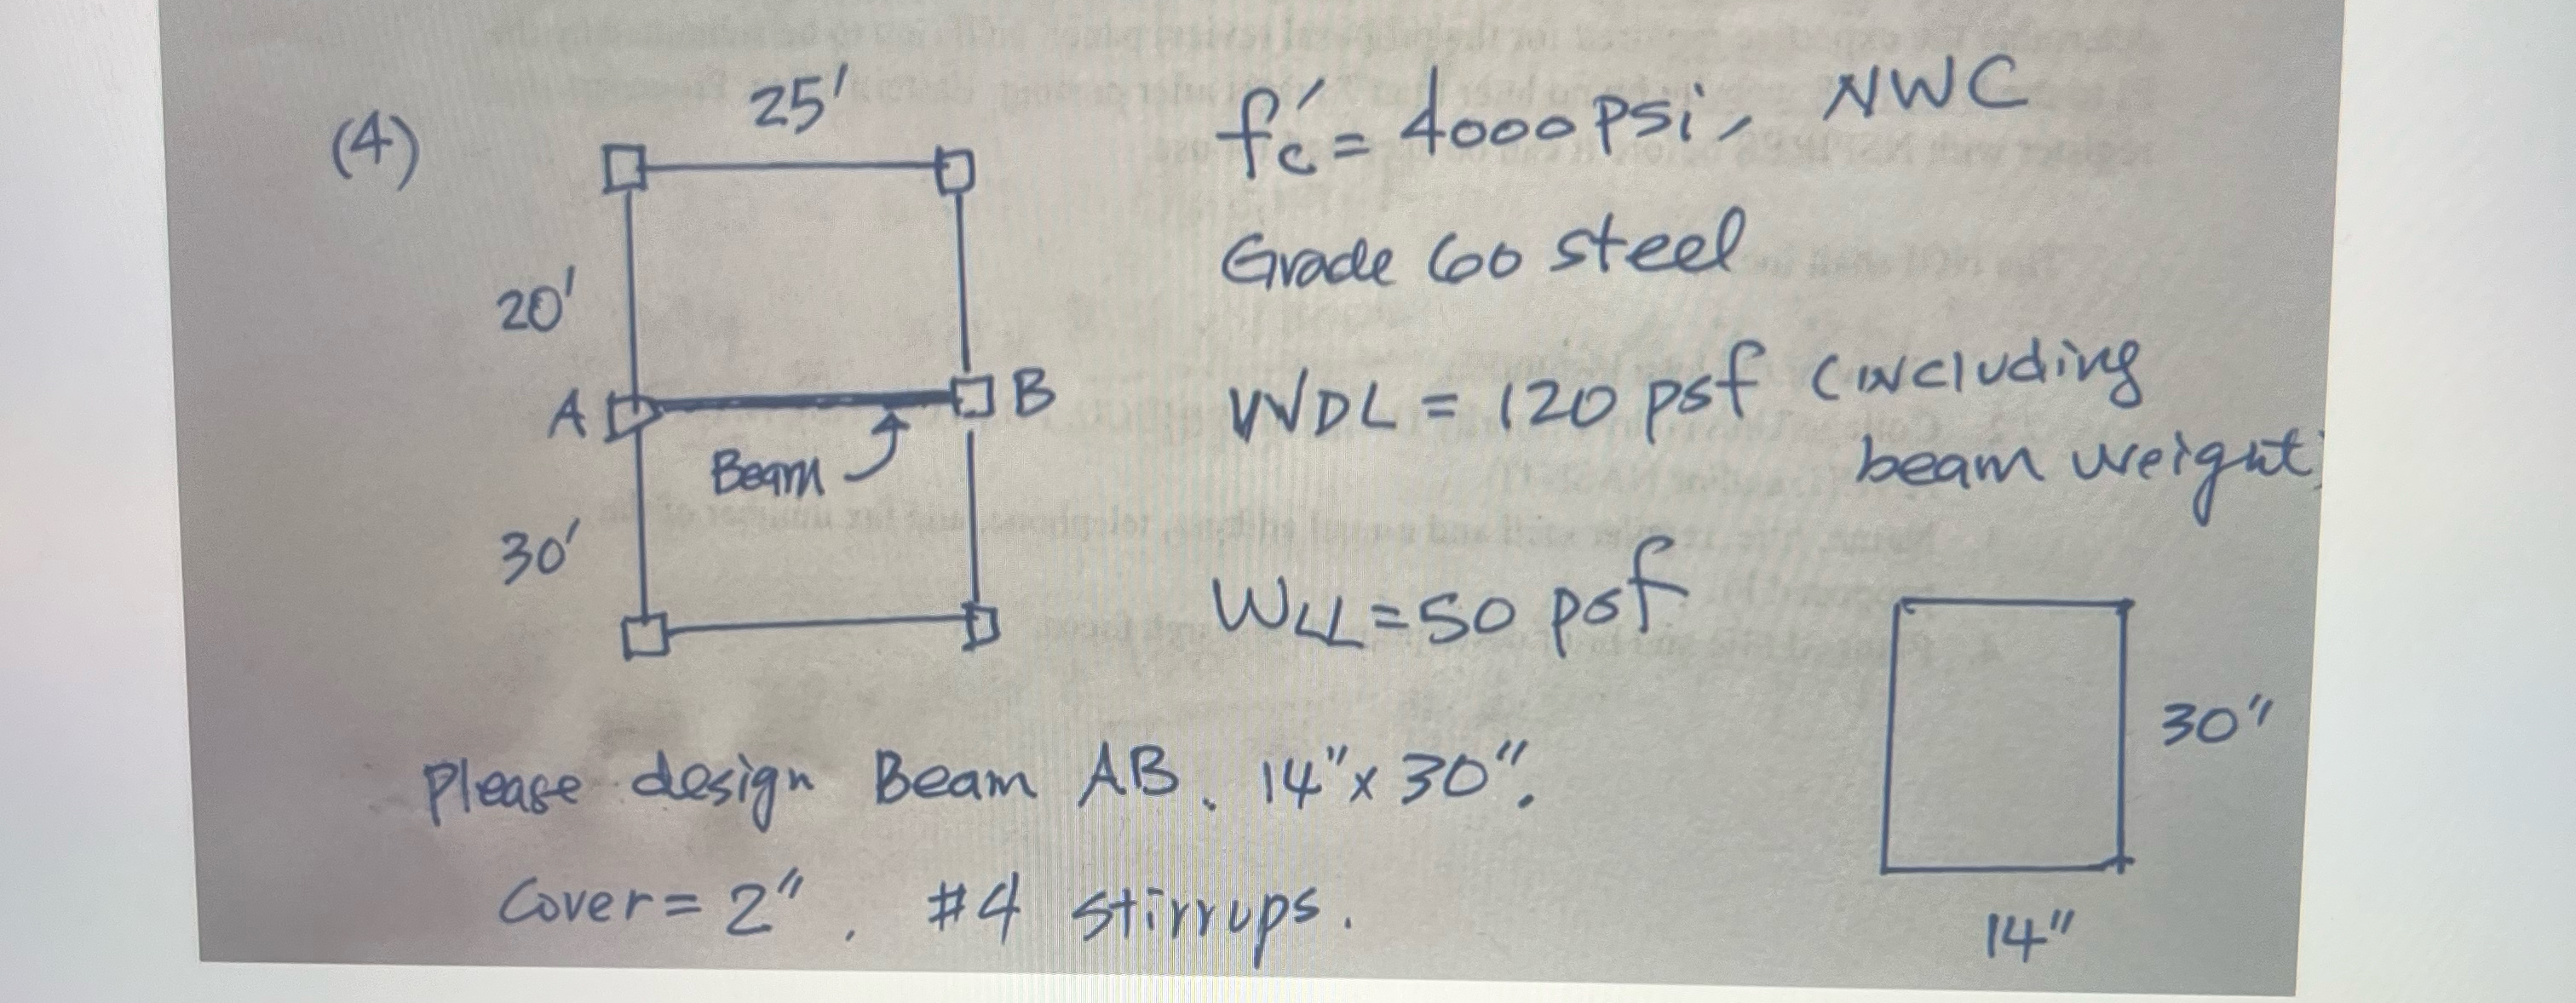 (4)
25'
20'
A
B
Beam
30'
f'c = 4000 psi, NWC
Grade 60 steel
WDL = 120 psf (including
beam weight)
WLL = 50 psf
30"
14"
Please design Beam AB. 14" x 30".
Cover = 2". #4 stirrups.